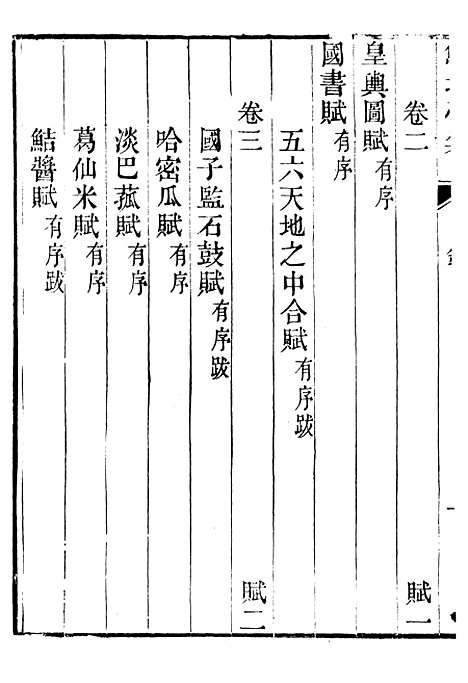 卷二 賦一
皇輿圖賦有序
國書賦有序
五六天地之中合賦有序跋
卷三 賦二
國子監石鼓賦有序跋
哈密瓜賦有序
淡巴菰賦有序
葛仙米賦有序
鮚醬賦有序跋